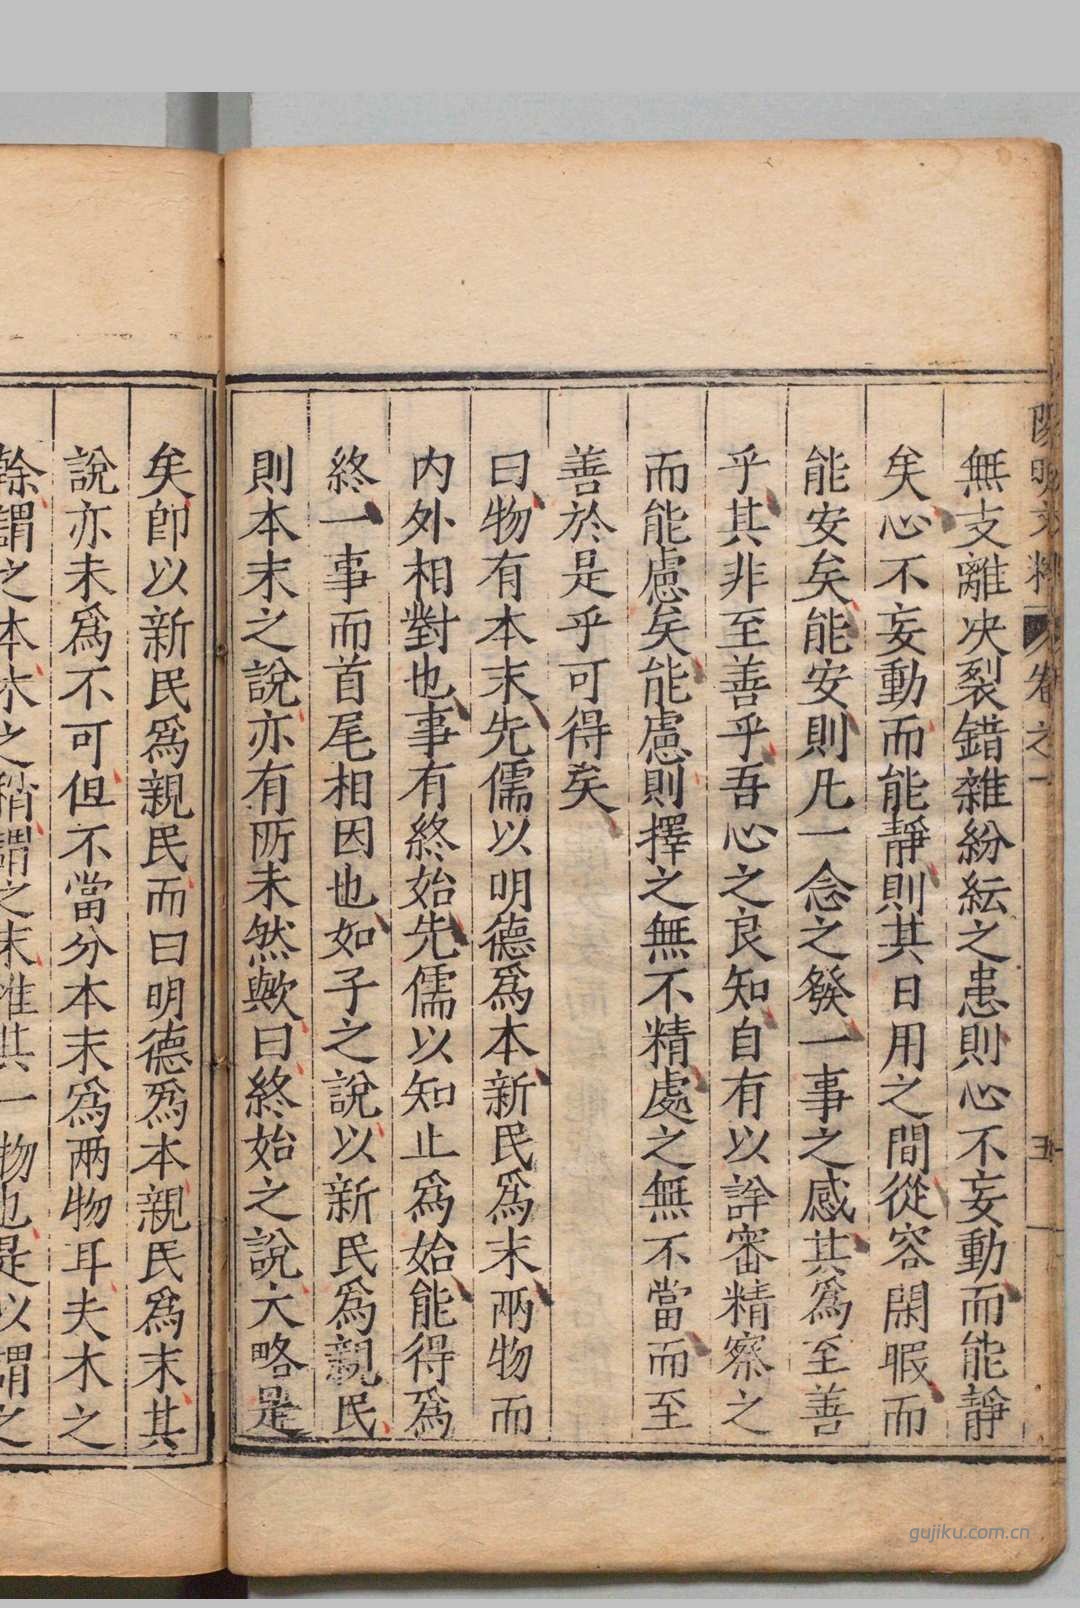 陽明文粹 卷之一 五
無支離决裂錯雜紛紜之患則心不妄動而能靜
矣心不妄動而能靜則其日用之間從容閑暇而
能安矣能安則凡一念之發一事之感其爲至善
乎其非至善乎吾心之良知自有以詳審精察之
而能慮矣能慮則擇之無不精處之無不當而至
善於是乎可得矣
曰物有本末先儒以明德爲本新民爲末兩物而
内外相對也事有終始先儒以知止爲始能得爲
終一事而首尾相因也如子之說以新民爲親民
則本末之說亦有所未然歟曰終始之說大略是
矣卽以新民爲親民而曰明德爲本親民爲末其
說亦未爲不可但不當分本末爲兩物耳夫木之
榦謂之本木之稍謂之末惟其一物也是以謂之
gujiku.com.cn